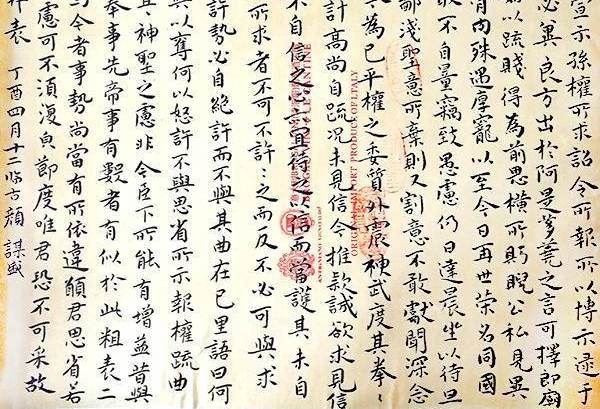 宣示孫權所求詔令所報所以博示逮于
必冀良方出於阿是芻蕘之言可擇郎廟
始以疏賤得為前恩橫所眄睨公私見異
骨肉殊遇厚寵以至今日再世榮名同國
敢不自量竊致愚慮仍日達晨坐以待旦
鄙淺聖意所棄則又割意不敢獻聞深念
為已平權之委質外震神武度其拳々
計高尚自疏況未見信今推款誠欲求見信
不自信之心亦宜待之以信而當護其未自
所求者不可不許々之而反不必可與求
許勢必自絕許而不與其曲在已里語曰何
與以奪何以怒許不與思省所示報權疏曲
宜神聖之慮非今臣下所能有增益昔與
奉事先帝事有數者有似於此粗表二
今者事勢尚當有所依違願君思省若
慮可不須復貌節度唯君恐不可采故
拜表 丁酉四月十二臨古 顏謀
IMPORT PRODUCT OF ITALY